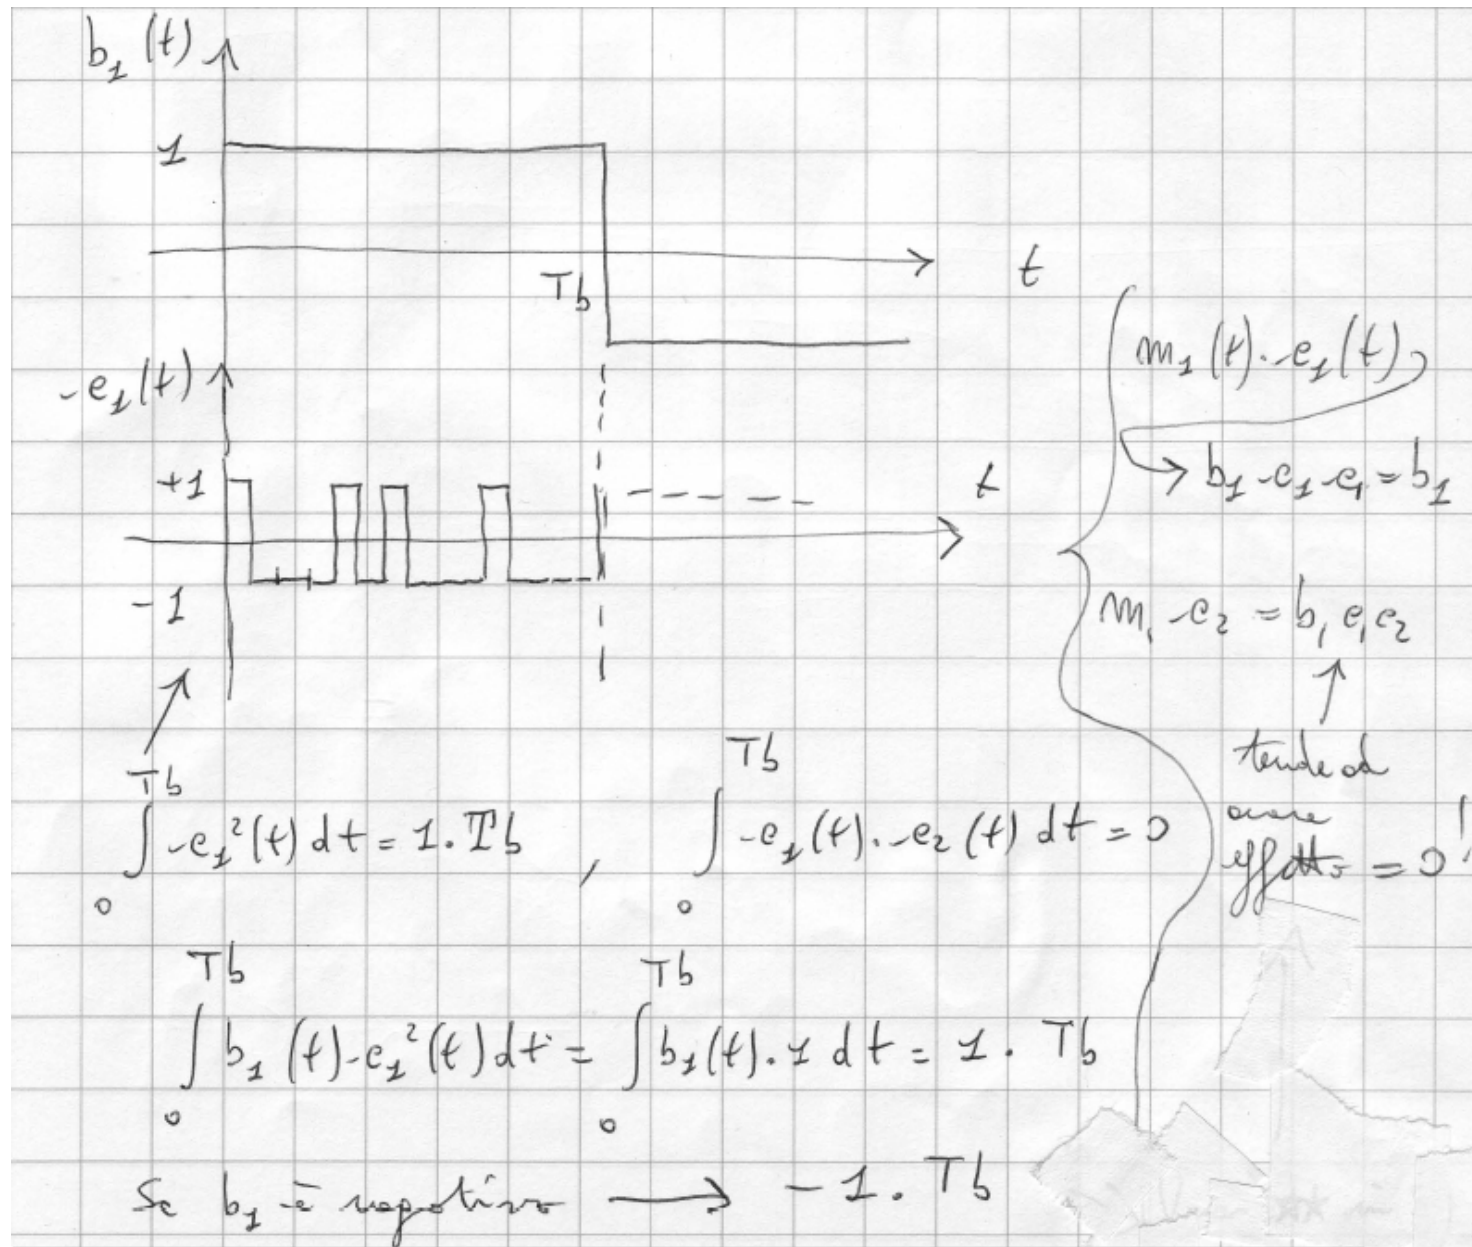 b₁(t)
1
t
Tb
c₁(t)
+1
t
-1
m₁(t)·c₁(t)
→ b₁ c₁ c₁ = b₁
m₁ c₂ = b₁ c₁ c₂
↑
tende ad
avere
effetto = 0!
∫₀ᵀᵇ c₁²(t) dt = 1·Tb , ∫₀ᵀᵇ c₁(t)·c₂(t) dt = 0
∫₀ᵀᵇ b₁(t) c₁²(t) dt = ∫₀ᵀᵇ b₁(t)·1 dt = 1· Tb
Se b₁ è negativo → -1· Tb